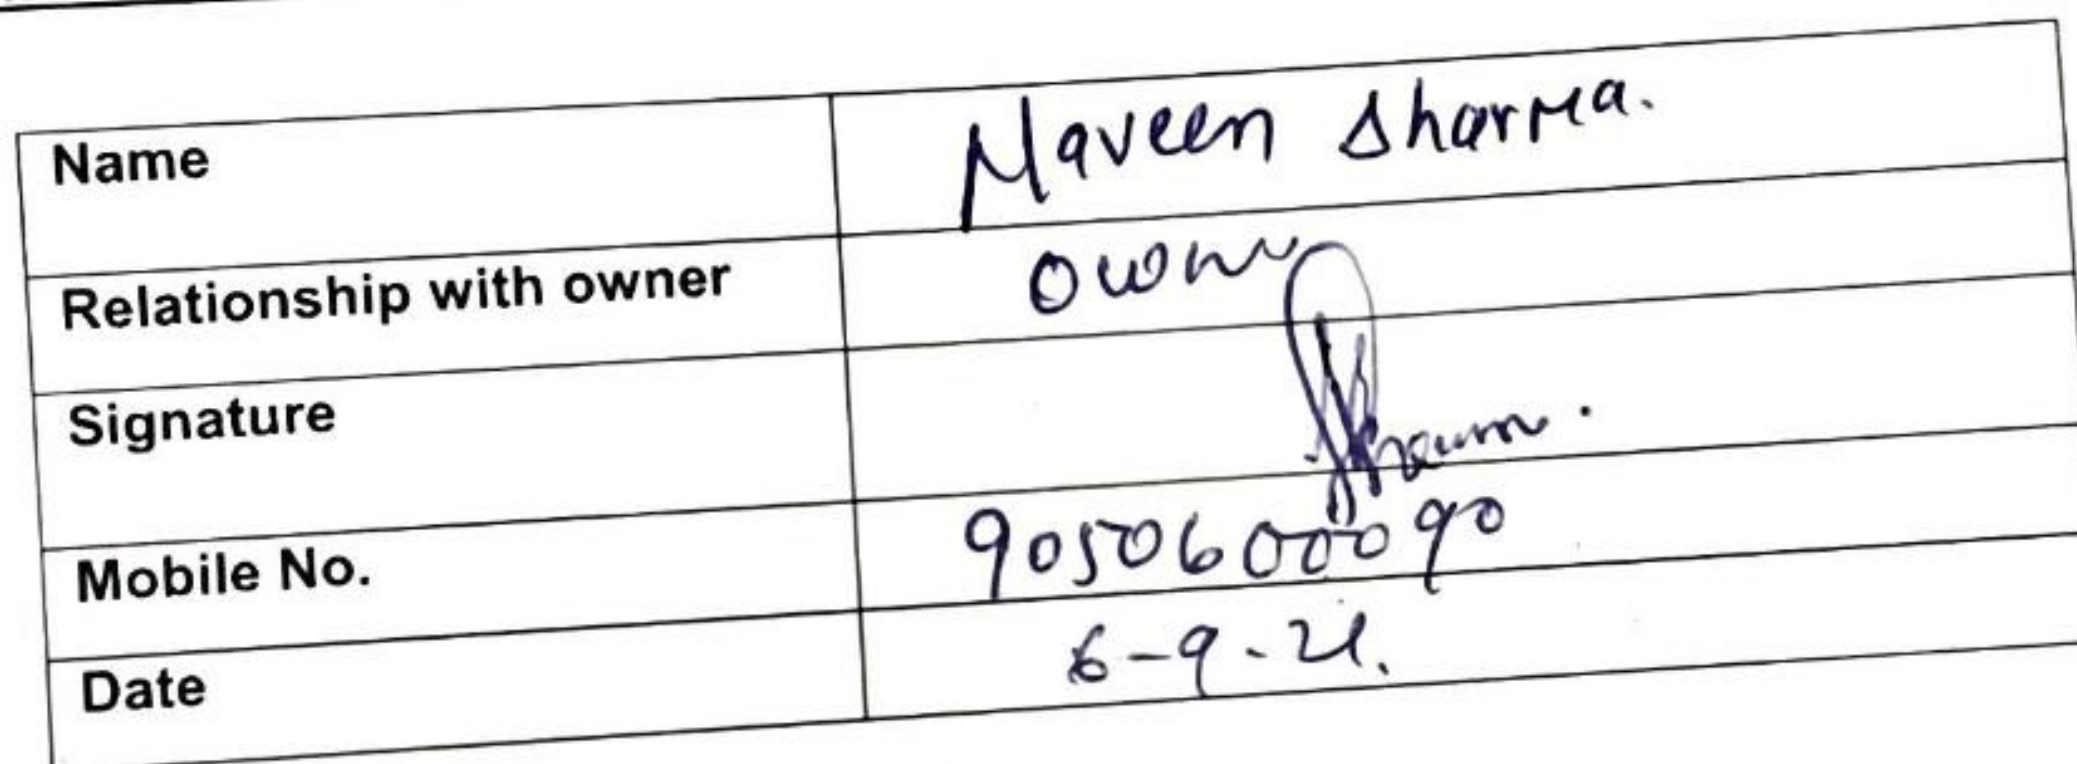 Name Naveen Sharma.
Relationship with owner owner
Signature Sharma.
Mobile No. 9050600090
Date 6-9-21.